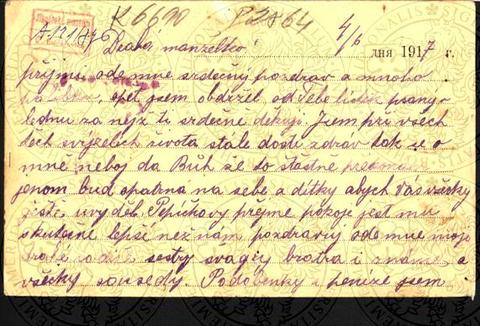 K 6690 P2864
A121
4/6 дня 1917 г.
Drahá manželko!
přijmi ode mne srdečný pozdrav a mnoho
opět jsem obdržel od Tebe lístek psaný
lednu za nějž ti srdečně děkuji. Jsem při všech
těch svízelích života stále dosti zdráv tak se o
mne neboj da Bůh že to šťastně
jenom buď opatrna na sebe a dítky abych Vás všecky
ještě uvyděl. Pepíčkovy přejme pokoje jest mu
skutečně lepší než nám pozdravuj ode mne moje
rodiče sestry švagry bratra i známe a
všecky sousedy. Podobenky i peníze jsem